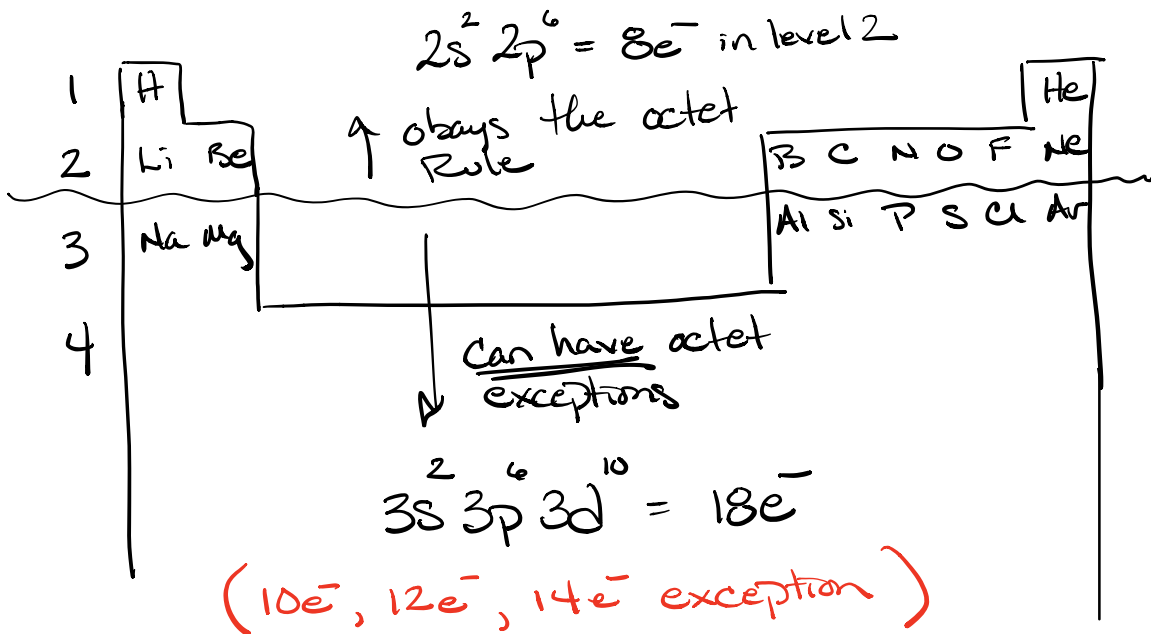 2s² 2p⁶ = 8e⁻ in level 2
1 H He
↑ obays the octet
Rule
2 Li Be B C N O F Ne
3 Na Mg Al Si P S Cl Ar
4
can have octet
exceptions
3s² 3p⁶ 3d¹⁰ = 18e⁻
(10e⁻, 12e⁻, 14e⁻ exception)